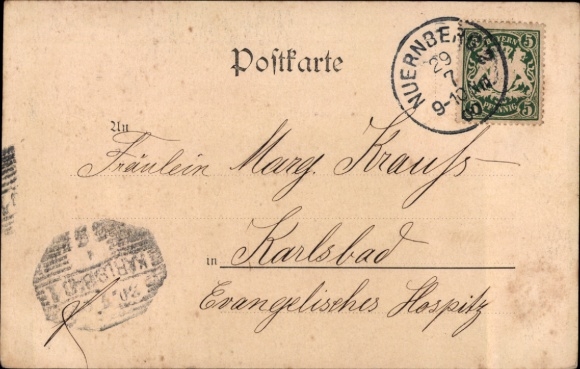 Postkarte
NUERNBERG
29
7
9-10
BAYERN
5 5
PFENNIG
An
Fräulein Marg. Krauss
in Karlsbad
Evangelisches Hospitz
KARLSBAD